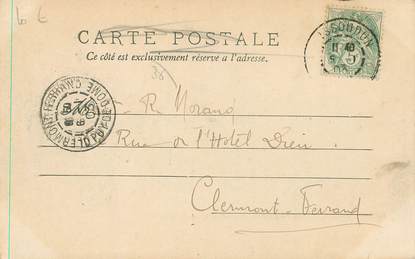 6 €
CARTE POSTALE
Ce côté est exclusivement réservé à l'adresse.
ISSOUDUN
36
R Morand
Rue de l'Hotel Dieu
Clermont-Ferrand
CLERMONT-FERRAND PUY-DE-DOME